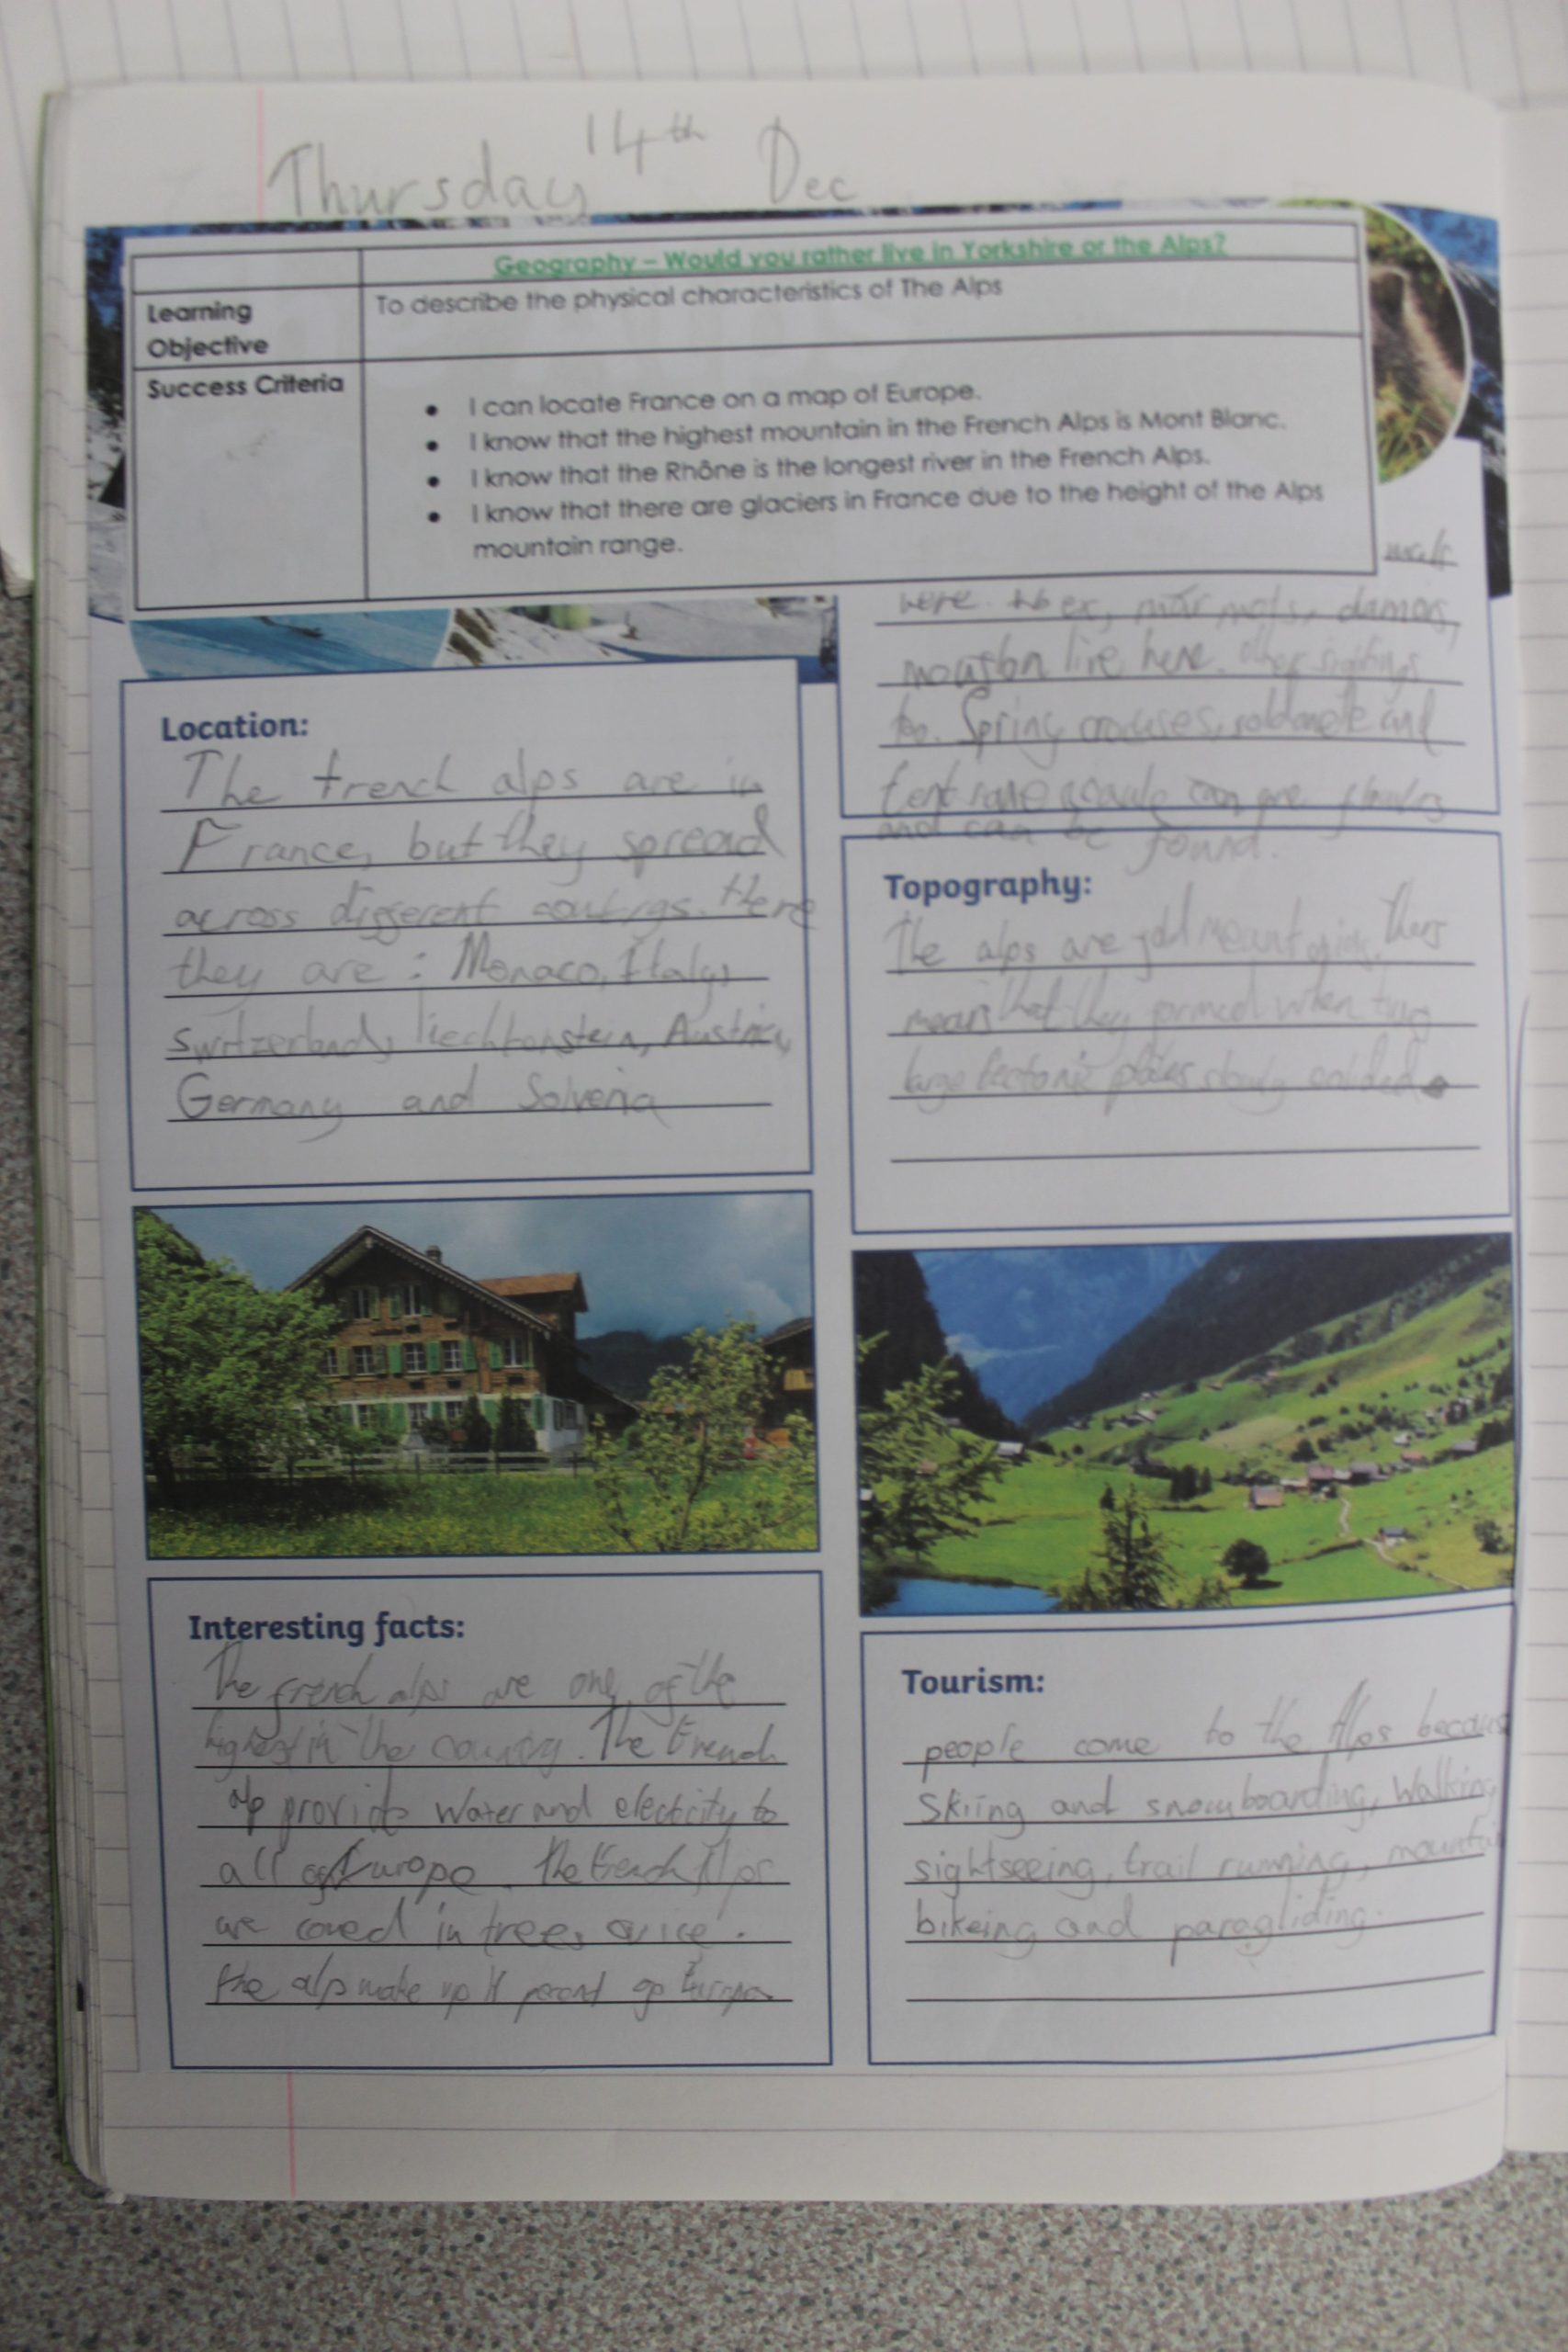 Thursday 14th Dec
Geography – Would you rather live in Yorkshire or the Alps?
Learning Objective
To describe the physical characteristics of The Alps
Success Criteria
• I can locate France on a map of Europe.
• I know that the highest mountain in the French Alps is Mont Blanc.
• I know that the Rhône is the longest river in the French Alps.
• I know that there are glaciers in France due to the height of the Alps
mountain range.
Location:
The french alps are in
France, but they spread
across different here
they are : Monaco, Italy,
Switzerland, liechtenstein, Austria,
Germany and Solvenia
Interesting facts:
The french alps are one of the
highest in the country. The french
alp provide water and electicity to
all of Europe. The french Alps
are coved in trees or ice.
the alps make up 11 of Europe
here. Ibex, marmots,
live here. other
too. Spring and
flowers
and can be found.
Topography:
The alps are fold
means that they formed when two
large tectonic plates slowly colided.
Tourism:
people come to the Alps because
Skiing and snowboarding, walking,
sightseeing, trail running, mountain
bikeing and paragliding.